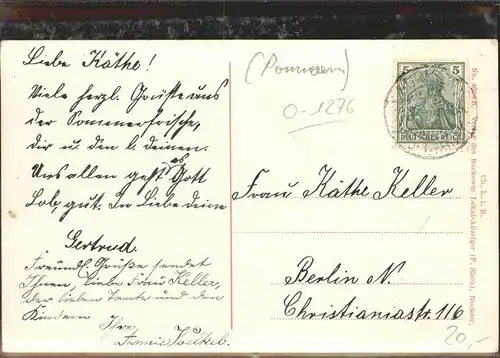 Liebe Käthe!
Viele herzl. Grüsse aus
der Sommerfrische,
dir u. den l. deinen.
Uns allen geht es Gott
Lob, gut. In Liebe deine
Gertrud.
Freundl. Grüße sendet
Ihnen, liebe Frau Keller,
der lieben Tante und den
Kindern
Ihre
Annie
(Pommern)
0-1276
5 5
DEUTSCHES REICH
Frau Käthe Keller
Berlin N.
Christianiastr. 116
20,-
Ch. J. i. B.
Verlag des Buckower Lokal-Anzeiger Buckow.